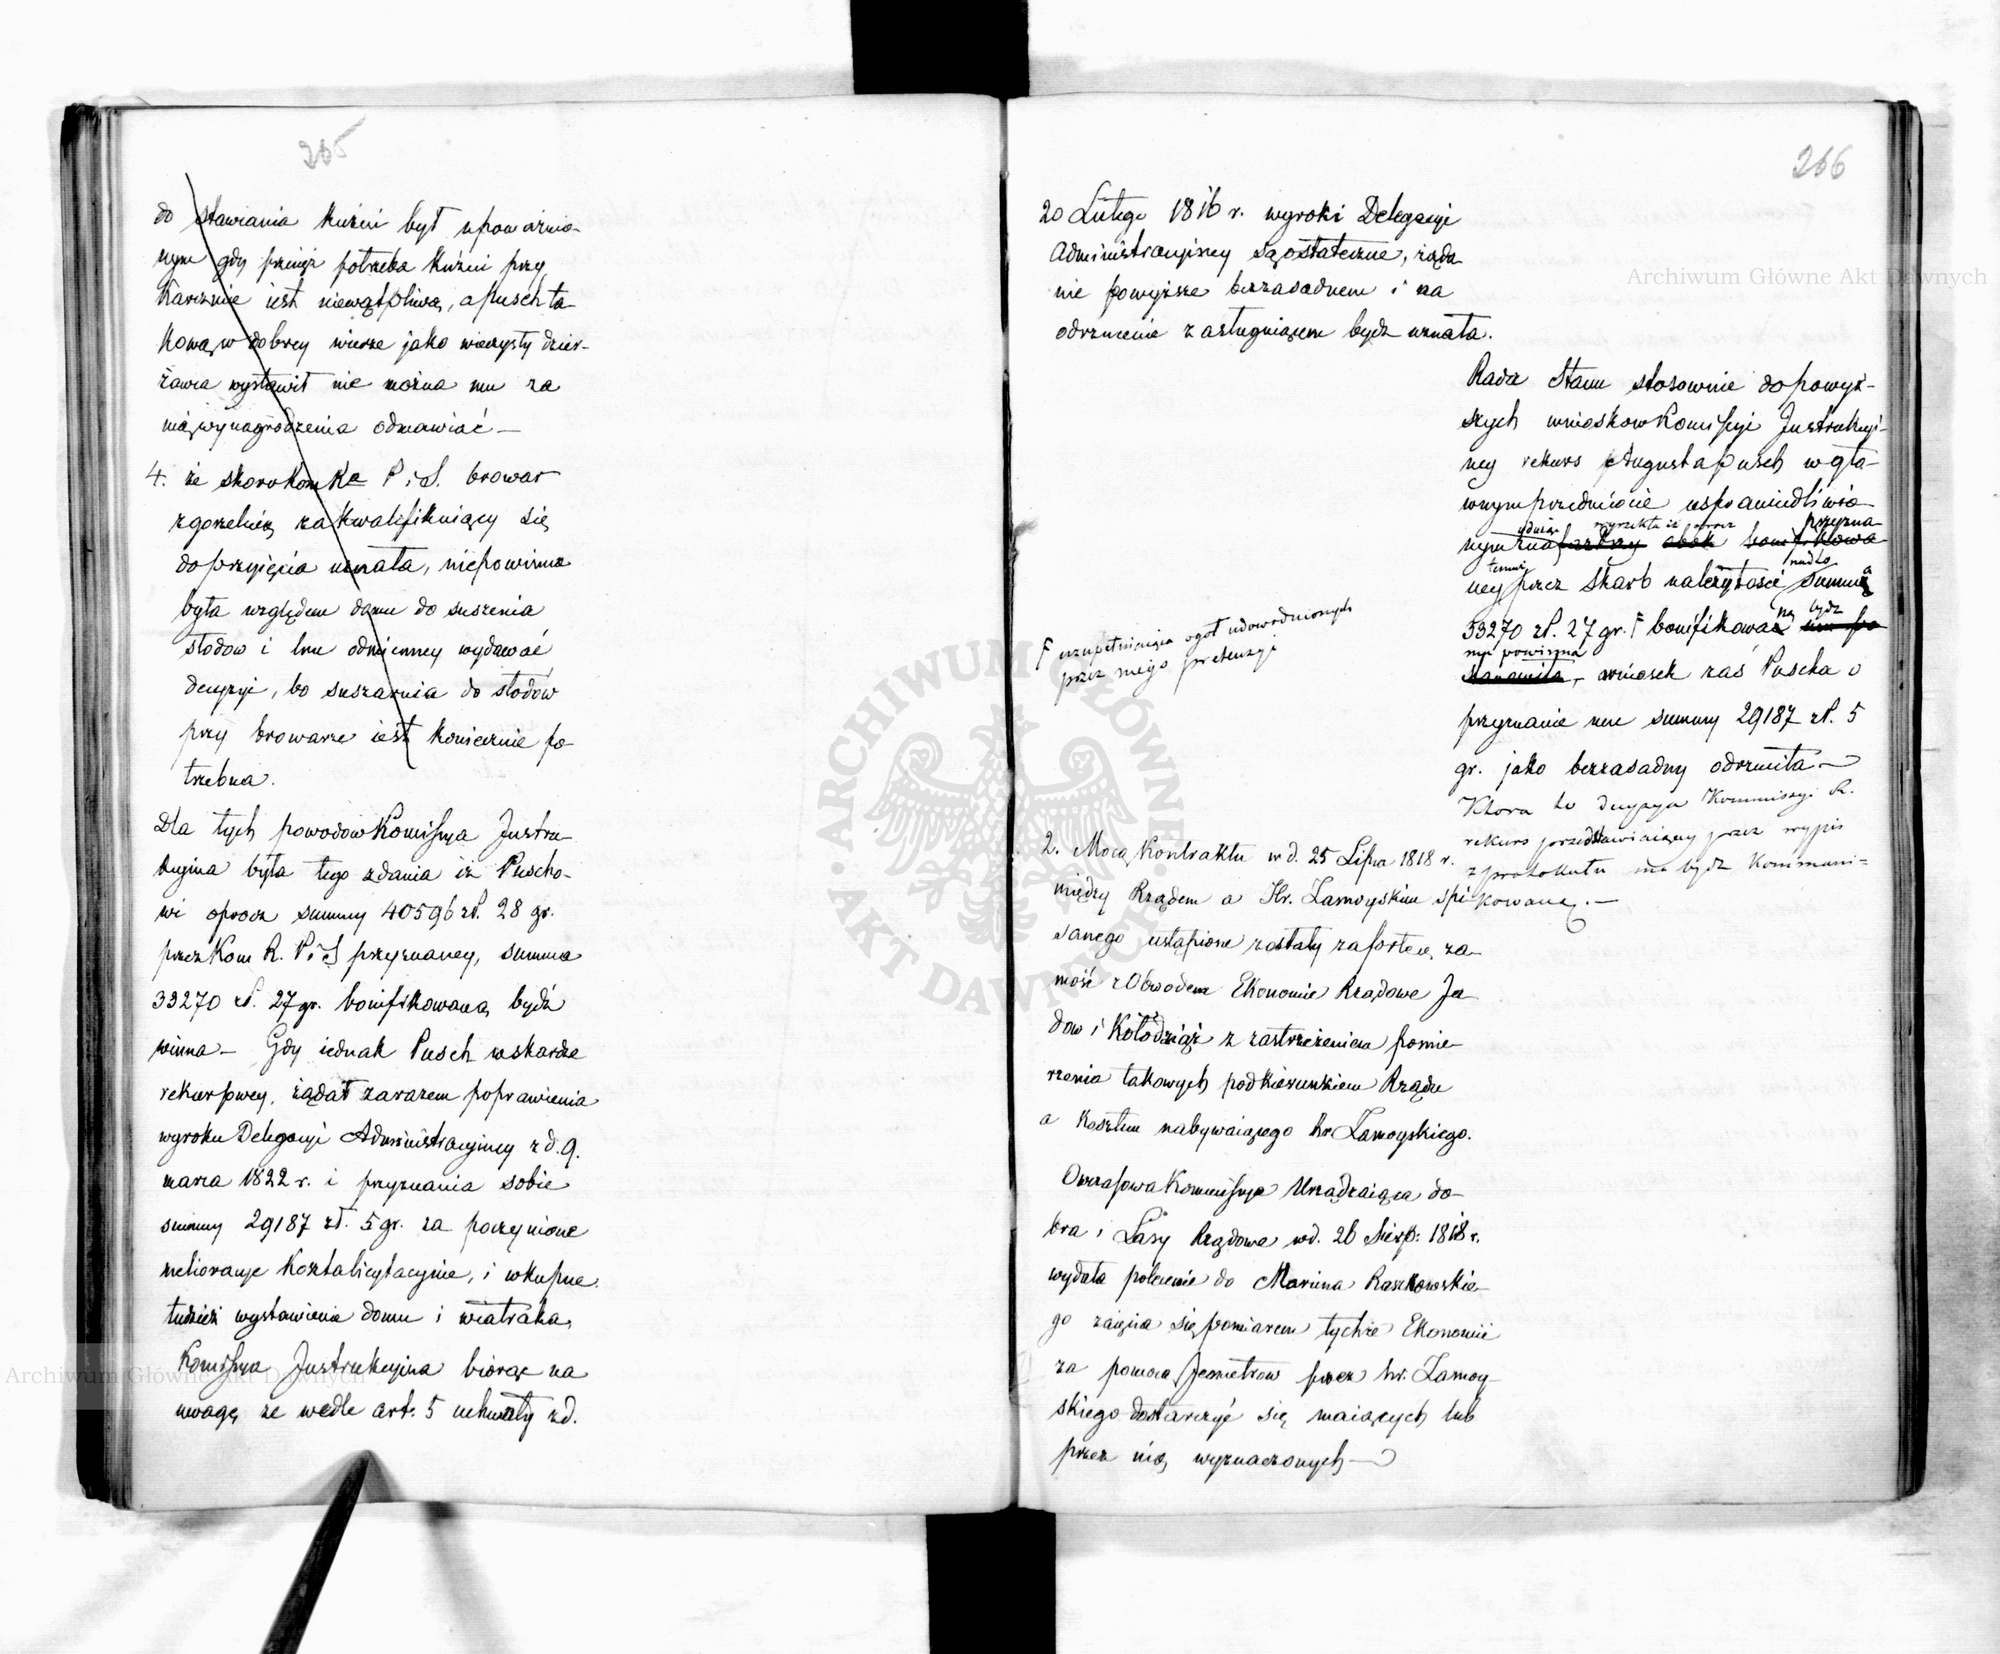 265
do stawiania kuźni był upoważnio-
nym gdy przeież potrzeba kuźni przy
karczmie iest niewątpliwą, a Pusch ta-
kową w dobrey wierze jako wieczysty dzier-
żawca wystawił nie można mu za
nią wynagrodzenia odmawiać —
4. że skoro Kom Ra P i S. browar
z gorzelnią za kwalifikuiący się
do przyięcia uznała, niepowinna
była względem domu do suszenia
słodow i lnu odmienney wydawać
decyzyi, bo suszarnia do słodów
przy browarze iest koniecznie po-
trzebna.
Dla tych powodow Komissya Instru-
kcyina była tego zdania iż Puscho-
wi oprocz summy 40596 zł. 28 gr.
przez Kom R. P. i S przyznaney, summa
33270 zł. 27 gr. bonifikowaną bydź
winna — Gdy iednak Pusch w skardze
rekursowey, żądał zarazem poprawienia
wyroku Delegacyi Administracyiney z d. 9.
marca 1822 r. i przyznania sobie
summy 29187 zł. 5 gr. za poczynione
melioracye kosztalicytacyine, i wkupne
tudzież wystawienia domu i wiatraka,
Komissya Instrukcyina biorąc na
uwagę że wedle art. 5 uchwały z d.
266
20 Lutego 1816 r. wyroki Delegacyi
Administracyiney są ostateczne, żąda-
nie powyższe bezzasadnem i na
odrzucenie zasługuiącem bydź uznała.
Rada Stanu stosownie do powyż-
szych wnioskow Komissyi Instrukcyi-
ney rekurs Augusta Pusch w głą-
wnym przedmiocie usprawiedliwio-
wyrzekła iż oprocz przyzna
nym
temuż nadto
ney przez Skarb należytości summa
33270 zł. 27 gr. F bonifikowaną bydź
mu powinna
stanowiła, — wniosek zaś Puscha o
przyznanie mu summy 29187 zł. 5
gr. jako bezzasadny odrzuciła —
Ktora to decyzya Kommissyi R.
rekurs przedstawiaiącey przez wypis
z protokułu ma bydź kommuni=
kowaną. —
F uzupełniaiąca ogół udowodnionych
przez niego pretensyi
2. Mocą Kontraktu w d. 25 Lipca 1818 r.
między Rządem a Hr. Zamoyskim spi-
sanego ustąpione zostały za fortecę Za-
mość z Obwodem Ekonomie Rządowe Ja-
dow i Kołodziąż z zastrzeżeniem pomie-
rzenia takowych pod kierunkiem Rządu
a kosztem nabywaiącego hr. Zamoyskiego.
Owczasowa Kommissya Urządzaiąca do-
bra i Lasy Rządowe w d. 26 Sierp: 1818 r.
wydała polecenie do Marcina Raszkowskie-
go zaięcia się pomiarem tychże Ekonomii
za pomocą Jeometrow przez hr. Zamoy-
skiego dostarczyć się maiących lub
przez nią wyznaczonych —
Archiwum Główne Akt Dawnych
Archiwum Główne Akt Dawnych
ARCHIWUM GŁÓWNE
AKT DAWNYCH